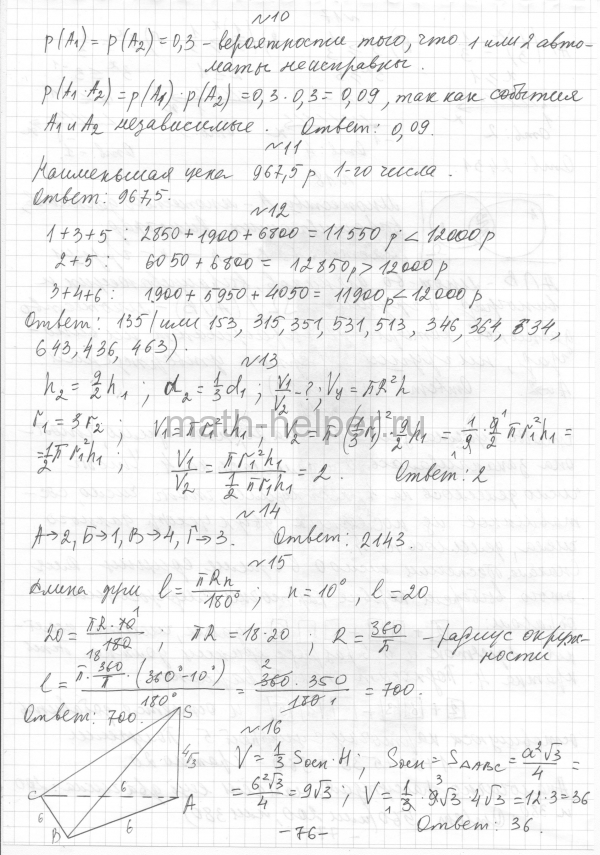 №10
p(A₁) = p(A₂) = 0,3 – вероятности того, что 1 или 2 авто-
маты неисправны.
p(A₁·A₂) = p(A₁)·p(A₂) = 0,3·0,3 = 0,09, так как события
A₁ и A₂ независимые. Ответ: 0,09.
№11
Наименьшая цена 967,5р 1-го числа.
Ответ: 967,5.
№12
1+3+5 : 2850+1900+6800 = 11550 р < 12000р
2+5 : 6050+6800 = 12850р > 12000р
3+4+6 : 1900+5950+4050 = 11900р < 12000р
Ответ: 135 (или 153, 315, 351, 531, 513, 346, 364, 634,
643, 436, 463).
№13
h₂ = 9/2 h₁ ; d₂ = 1/3 d₁ ; V₁/V₂ - ? ; Vц = πR²h
r₁ = 3r₂ ; V₁ = πr₁²·h₁ , V₂ = π·(1/3 r₁)²·9/2 h₁ = 1/9·9/2 πr₁²h₁ =
= 1/2 πr₁²h₁ ; V₁/V₂ = πr₁²h₁ / (1/2 πr₁h₁) = 2. Ответ: 2
math-helper.ru
№14
А→2, Б→1, В→4, Г→3. Ответ: 2143.
№15
Длина дуги l = πRn/180° ; n = 10° , l = 20
20 = πR·10/180 ; πR = 18·20 ; R = 360/π – радиус окруж-
ности
l = π·360/π·(360°-10°)/180° = 360·350/180 = 700.
Ответ: 700.
№16
V = 1/3 Sосн·H ; Sосн = S△ABC = a²√3/4 =
= 6²√3/4 = 9√3 ; V = 1/3·9√3·4√3 = 12·3 = 36
Ответ: 36.
S
4√3
C
6
A
6
6
B
-76-